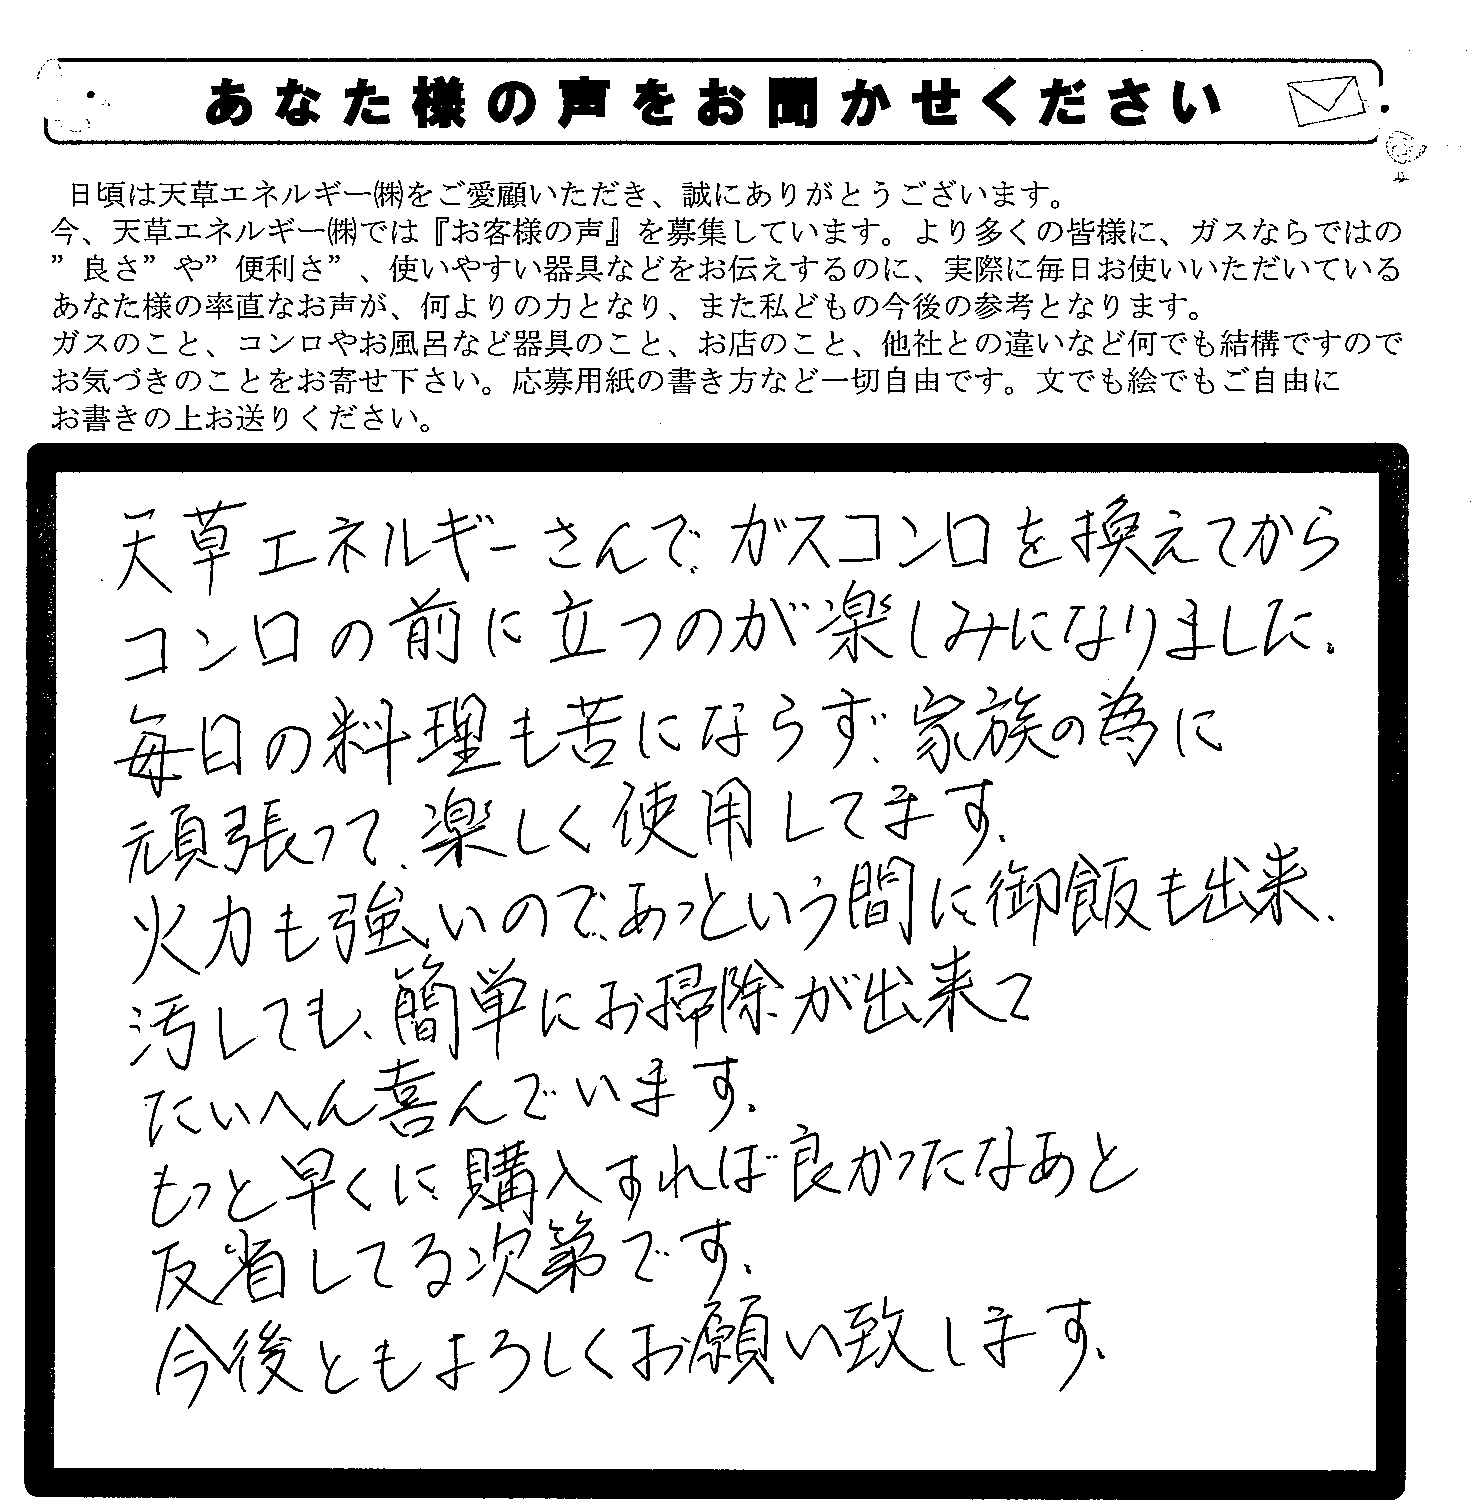 あなた様の声をお聞かせください
日頃は天草エネルギー㈱をご愛顧いただき、誠にありがとうございます。
今、天草エネルギー㈱では『お客様の声』を募集しています。より多くの皆様に、ガスならではの
”良さ”や”便利さ”、使いやすい器具などをお伝えするのに、実際に毎日お使いいただいている
あなた様の率直なお声が、何よりの力となり、また私どもの今後の参考となります。
ガスのこと、コンロやお風呂など器具のこと、お店のこと、他社との違いなど何でも結構ですので
お気づきのことをお寄せ下さい。応募用紙の書き方など一切自由です。文でも絵でもご自由に
お書きの上お送りください。
天草エネルギーさんで、ガスコンロを換えてから
コンロの前に立つのが楽しみになりました。
毎日の料理も苦にならず、家族の為に
頑張って、楽しく使用してます。
火力も強いので、あっという間に御飯も出来、
汚しても、簡単にお掃除が出来て
たいへん喜んでいます。
もっと早くに購入すれば良かったなあと
反省してる次第です。
今後ともよろしくお願い致します。